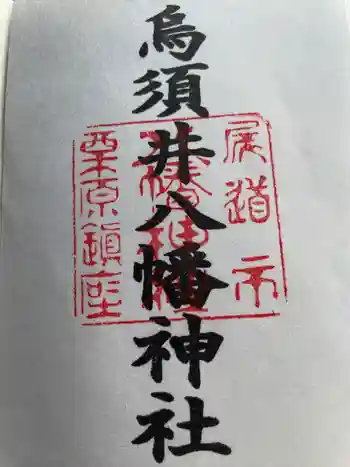 烏須井八幡神社
尾道市
栗原鎮座